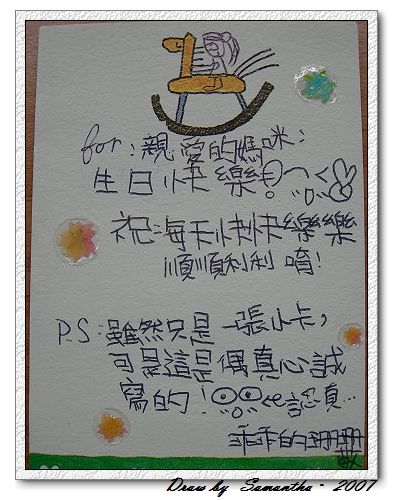 for:親愛的媽咪:
生日快樂!
祝:每天快快樂樂
順順利利唷!
P.S:雖然只是一張小卡,
可是這是偶真心誠
寫的!認真...
乖乖的珊珊
敬
Draw by Samantha - 2007